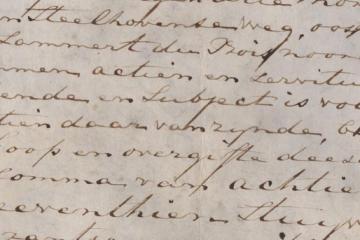 Steelhovense weg, oost
Lammert du Bois, noor
men actien en servitu
ende en Subject is voo
tien daar van zynde, be
oop en overgifte deese
omma van achtie
eeventhien Stuyv